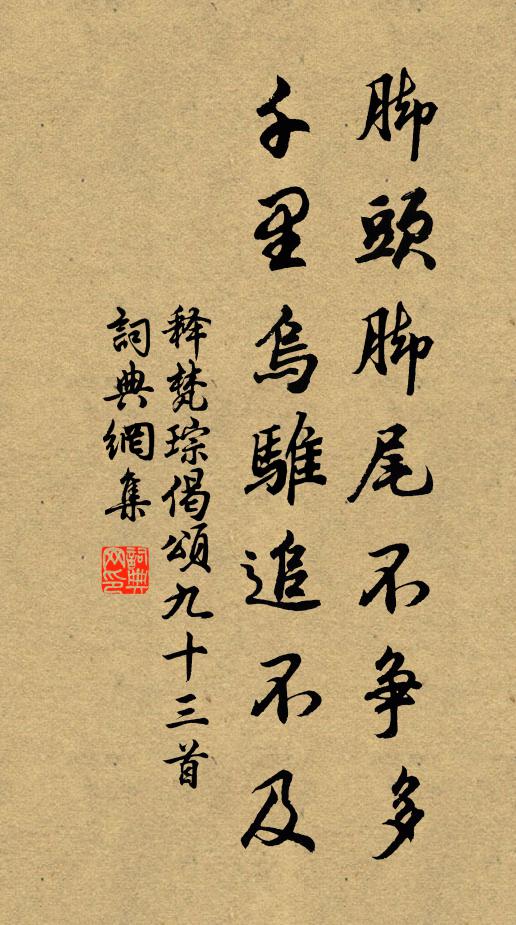 脚頭脚尾不争多
千里烏騅追不及
释梵琮偈頌九十三首
詞典網集
詞典网印